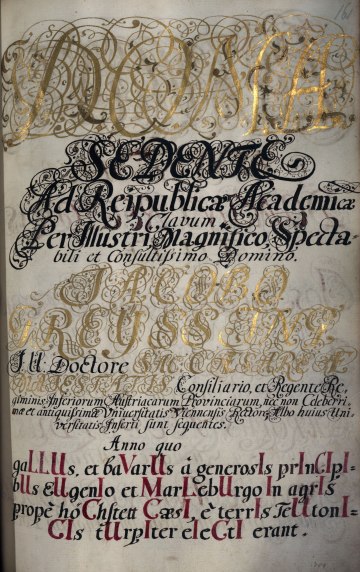 SEDENTE
Ad Reipublicæ Academicæ
Clavum
Per Illustri, Magnifico, Specta-
bili et Consultissimo Domino.
JACOBO
GREYSSING
J.U. Doctore SAC: CÆSAREÆ
MAJESTATIS Consiliario, et Regente Re-
giminis Inferiorum Austriacarum Provinciarum, nec non Celeberri-
mæ et antiquissimæ Universitatis Viennensis Rectore, Albo huius Uni-
versitatis Inserti sunt sequentes.
Anno quo
gaLLUs, et baVarUs à generosIs prInCIpI-
bUs EUgenIo et MarLebUrgo In agrIs
propè hőChstett CæsI, è terrIs TeUtonI-
CIs tUrpIter eIeCtI erant.